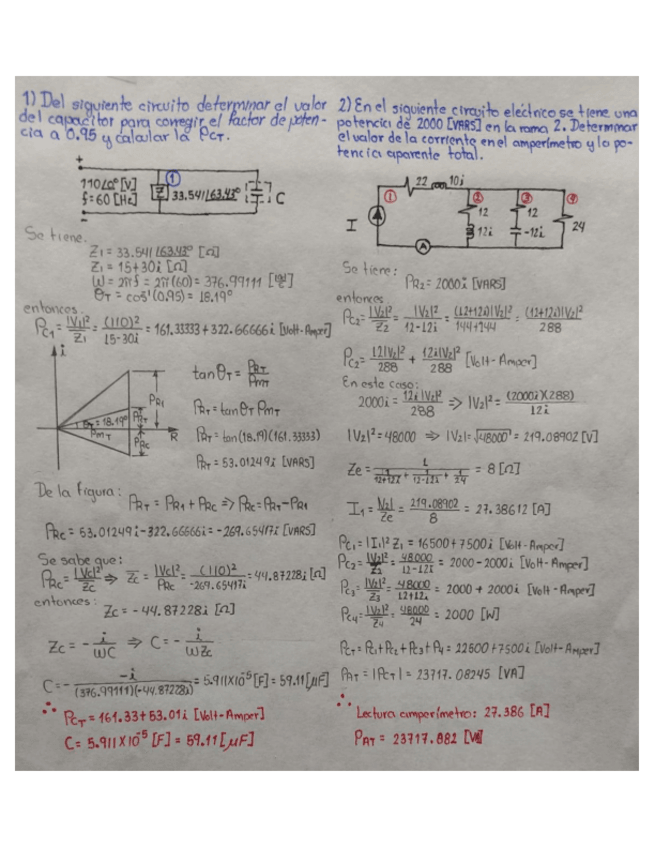 1) Del siguiente circuito determinar el valor
del capacitor para corregir el factor de poten-
cia a 0.95 y calcular la PcT.
+
110∠0° [V]
f=60 [Hz]
-
Z
①
33.541∠63.43°
C
Se tiene:
Z1 = 33.541∠63.43° [Ω]
Z1 = 15+30i [Ω]
W = 2πf = 2π(60) = 376.99111
θT = cos⁻¹(0.95) = 18.19°
entonces:
Pc1 = |V1|²/Z1 = (110)²/15-30i = 161.33333 + 322.66666i [Volt-Amper]
i
θT = 18.19°
PmT
PRT
PR1
PRc
R
tan θT = PRT/PmT
PRT = tan θT PmT
PRT = tan(18.19)(161.33333)
PRT = 53.01249i [VARS]
De la figura:
PRT = PR1 + PRc => PRc = PRT - PR1
PRc = 53.01249i - 322.66666i = -269.65417i [VARS]
Se sabe que:
PRc = |Vc|²/Zc => Zc = |Vc|²/PRc = (110)²/-269.65417i = 44.87228i [Ω]
entonces:
Zc = -44.87228i [Ω]
Zc = - i/WC => C = - i/WZc
C = - -i/(376.99111)(-44.87228i) = 5.911X10⁻⁵ [F] = 59.11 [μF]
∴ PcT = 161.33 + 53.01i [Volt-Amper]
C = 5.911X10⁻⁵ [F] = 59.11 [μF]
2) En el siguiente circuito eléctrico se tiene una
potencia de 2000 [VARS] en la rama 2. Determinar
el valor de la corriente en el amperímetro y la po-
tencia aparente total.
22 10i
① ② ③ ④
I
12 12
24
12i -12i
A
Se tiene:
PR2 = 2000i [VARS]
entonces
Pc2 = |V2|²/Z2 = |V2|²/12-12i = (12+12i)|V2|²/144+144 = (12+12i)|V2|²/288
Pc2 = 12|V2|²/288 + 12i|V2|²/288 [Volt-Amper]
En este caso:
2000i = 12i|V2|²/288 => |V2|² = (2000i)(288)/12i
|V2|² = 48000 => |V2| = √48000 = 219.08902 [V]
Ze = 1/(1/12+12i + 1/12-12i + 1/24) = 8 [Ω]
I1 = |V2|/Ze = 219.08902/8 = 27.38612 [A]
Pc1 = |I1|² Z1 = 16500 + 7500i [Volt-Amper]
Pc2 = |V2|²/Z2 = 48000/12-12i = 2000-2000i [Volt-Amper]
Pc3 = |V2|²/Z3 = 48000/12+12i = 2000 + 2000i [Volt-Amper]
Pc4 = |V2|²/Z4 = 48000/24 = 2000 [W]
PcT = Pc1 + Pc2 + Pc3 + P4 = 22500 + 7500i [Volt-Amper]
PAT = |PcT| = 23717.08245 [VA]
∴ Lectura amperímetro: 27.386 [A]
PAT = 23717.082